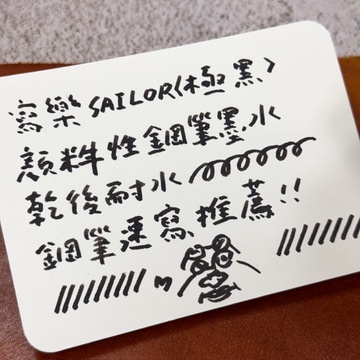 寫樂 SAILOR〈極黑〉
顏料性鋼筆墨水
乾後耐水
鋼筆速寫推薦!!